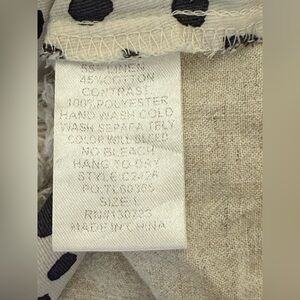 55% LINEN
45% COTTON
CONTRAST
100% POLYESTER
HAND WASH COLD
WASH SEPARATELY
COLOR WILL BLEED
NO BLEACH
HANG TO DRY
STYLE C2426
PO:TL60365
SIZE L
RN#130723
MADE IN CHINA